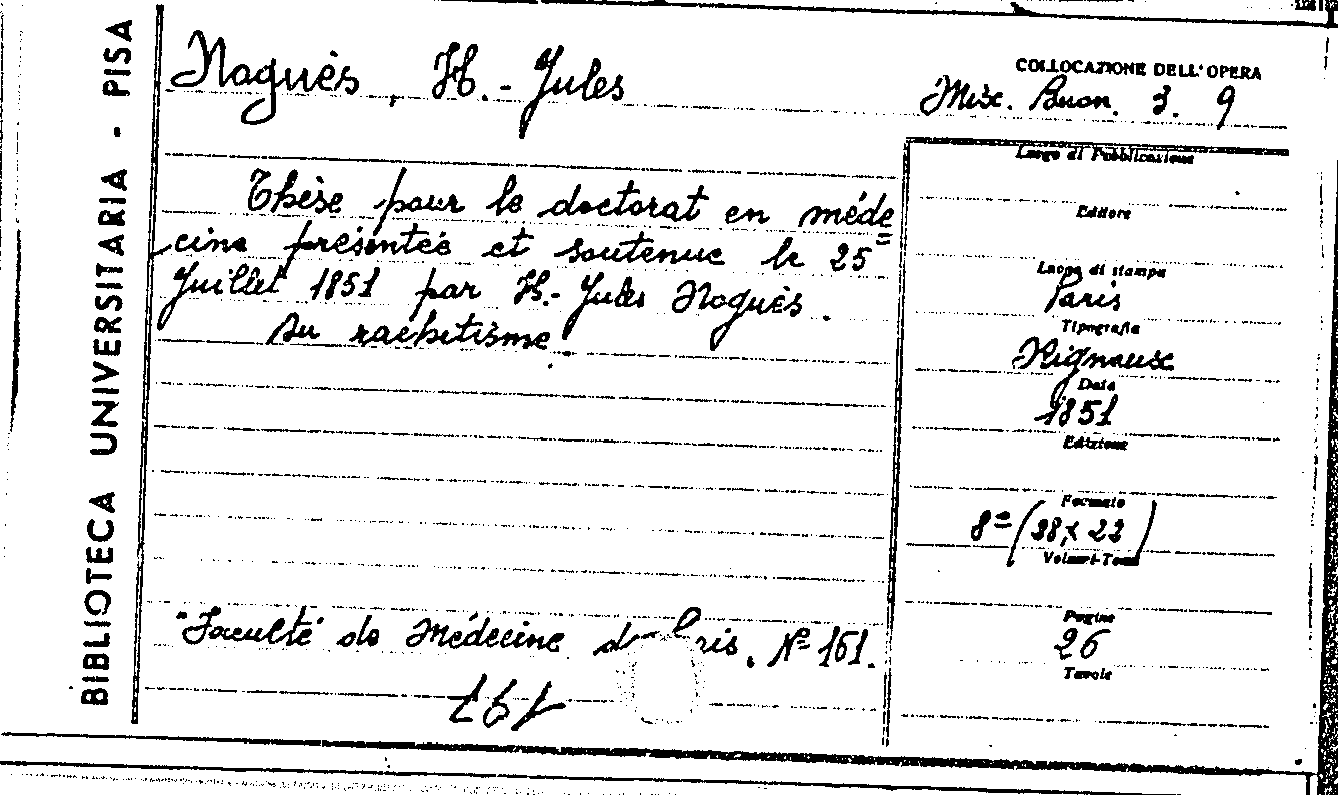 BIBLIOTECA UNIVERSITARIA - PISA
Noguès, H.- Jules
COLLOCAZIONE DELL'OPERA
Misc. Buon. 3. 9
Thèse pour le doctorat en méde
cine présentée et soutenue le 25
Juillet 1851 par H.- Jules Noguès.
Du rachitisme.
"Faculté de Médecine de Paris. Nº 161.
Luogo di Pubblicazione
Editore
Luogo di stampa
Paris
Tipografia
Rignoux
Data
1851
Edizione
Formato
8º (28 x 22)
Volumi-Tomi
Pagine
26
Tavole